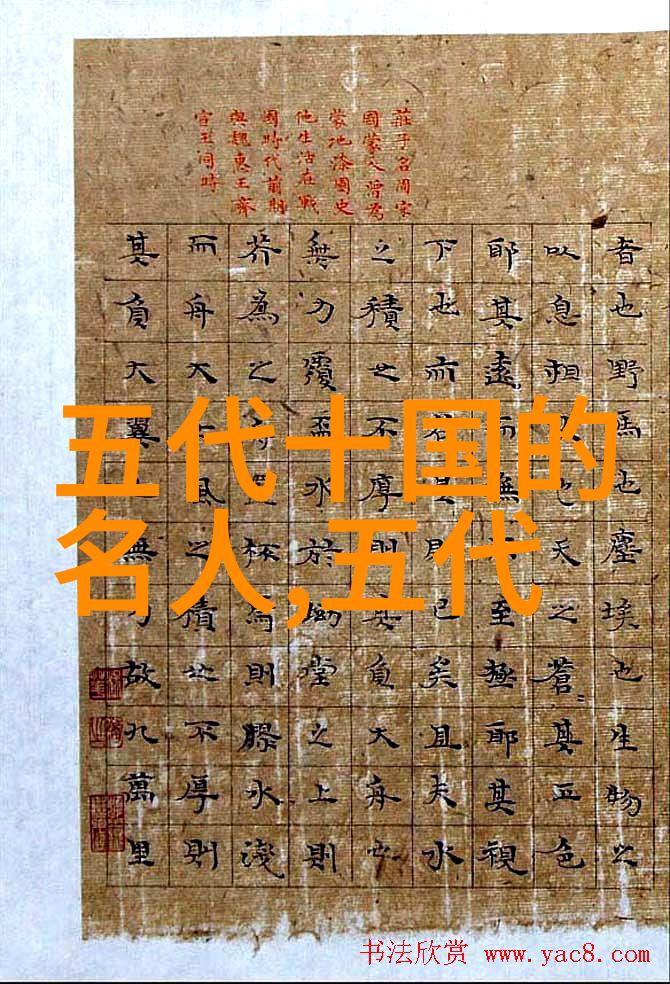 莊子名周宋
國蒙人曾為
蒙地漆園史
他生活在戰
國時代前期
與魏惠王齊
宣王同時
者也野馬也塵埃也生物之
以息相吹也天之蒼〻其正色
耶其遠而無所至極耶其視
下也而若是則已矣且夫水
之積也不厚則其負大舟也
無力覆盃水於坳堂之上則
芥為之舟置杯焉則膠水淺
而舟大也風之積也不厚則
其負大翼也無力故九萬里
五代十国的
名人,五代
书法欣赏 www.yac8.com